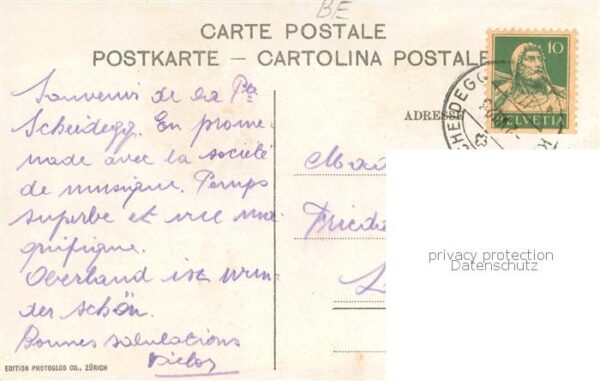 BE
CARTE POSTALE
POSTKARTE – CARTOLINA POSTALE
10
HELVETIA
ADRESSE
Souvenir de la Pte
Scheidegg. En prome-
nade avec la société
de musique. Temps
superbe et vue ma-
gnifique.
Oberland ist wun-
der schön.
Bonnes salutations
Victor
Mad
Frieda
privacy protection
Datenschutz
EDITION PHOTOGLOB CO., ZÜRICH